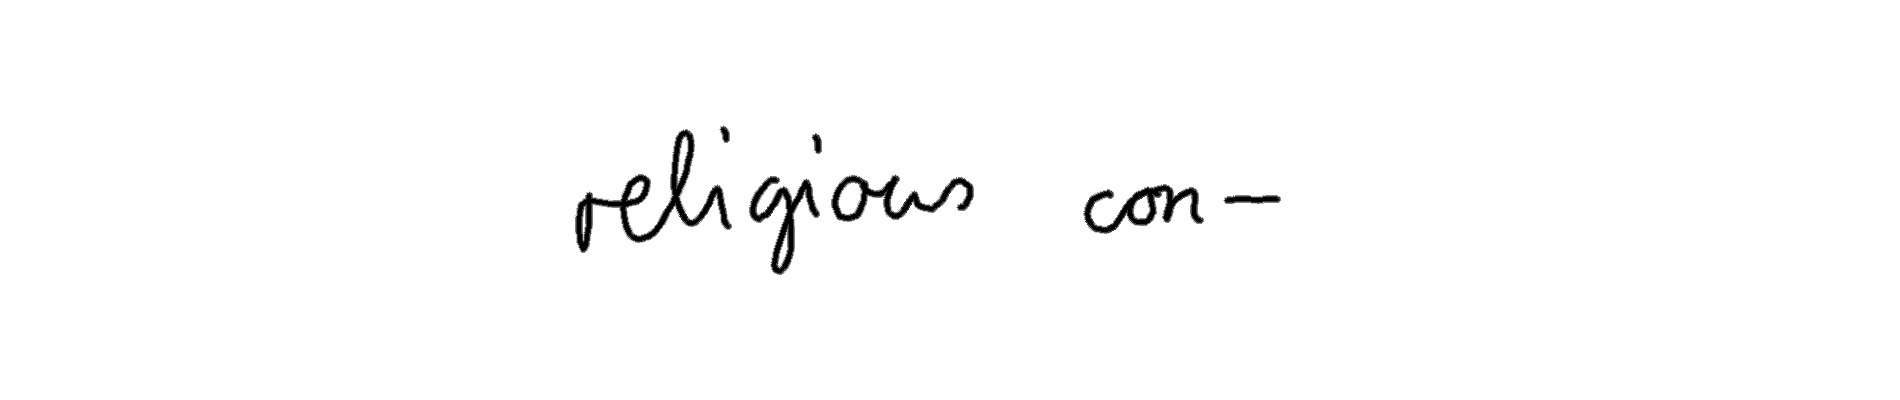 religious con-